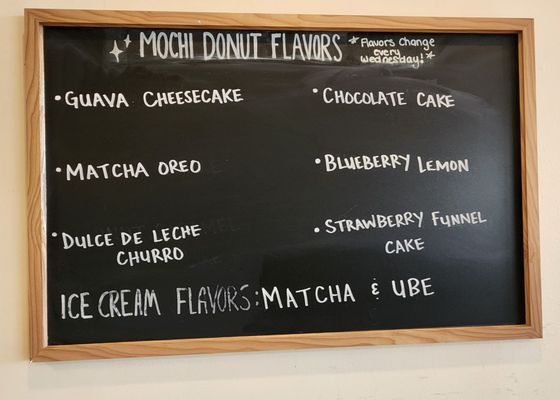 MOCHI DONUT FLAVORS
*Flavors Change
every
Wednesday!*
• GUAVA CHEESECAKE
• CHOCOLATE CAKE
• MATCHA OREO
• BLUEBERRY LEMON
• DULCE DE LECHE
CHURRO
• STRAWBERRY FUNNEL
CAKE
ICE CREAM FLAVORS: MATCHA & UBE